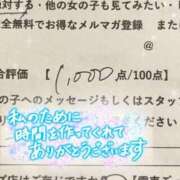 対する・他の女の子も見てみたい・
全無料でお得なメルマガ登録 また
@
合評価 【 1,000 点/100点】
の子へのメッセージもしくはスタッ
私のために
時間を作ってくれて
ありがとうございます